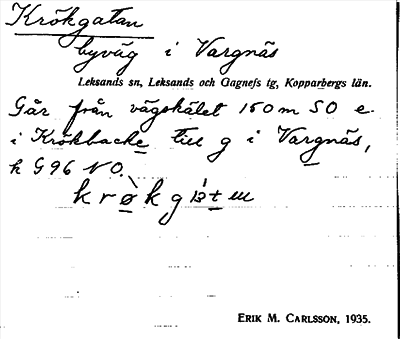 Krökgatan
byväg i Vargnäs
Leksands sn, Leksands och Gagnefs tg, Kopparbergs län.
Går från vägskälet 150 m SO e.
i Krökbacke till g i Vargnäs,
k G96 NO.
ERIK M. CARLSSON, 1935.